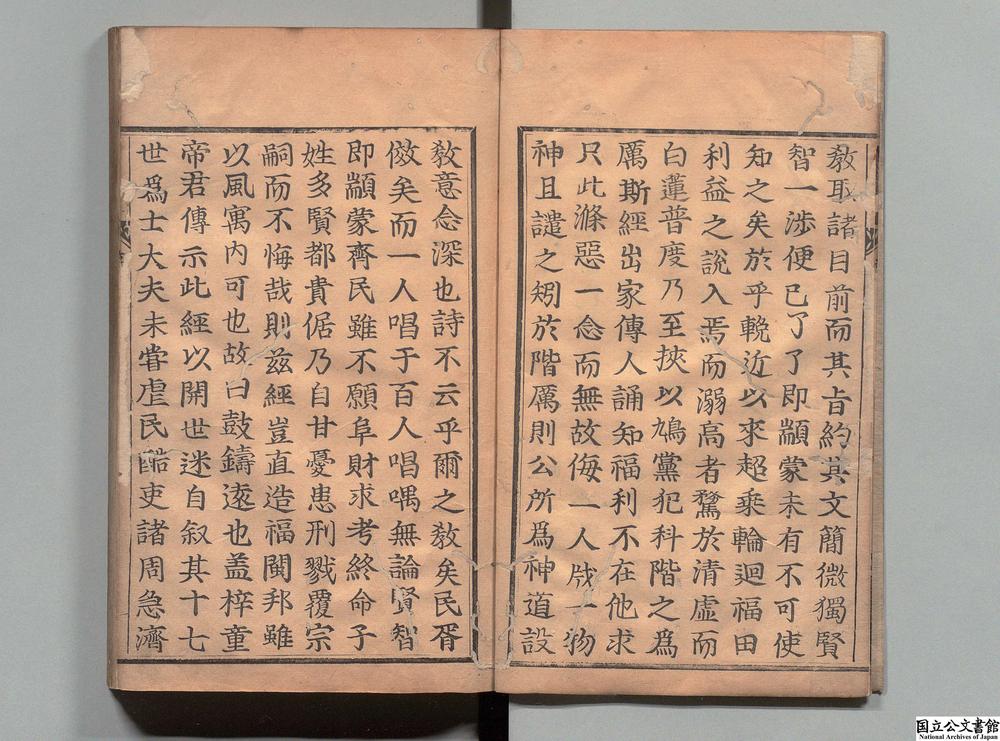 敎取諸目前而其旨約其文簡微獨賢
智一涉便已了了即顓蒙未有不可使
知之矣於乎輓近以來超乘輪迴福田
利益之說入焉而溺高者騖於清虛而
白蓮普度乃至挾以鳩黨犯科階之爲
厲斯經出家傳人誦知福利不在他求
只此滌惡一念而無故侮一人戕一物
神且譴之矧於階厲則公所爲神道設
敎意念深也詩不云乎爾之敎矣民胥
傚矣而一人唱于百人唱喁無論賢智
即顓蒙齊民雖不願阜財求考終命子
姓多賢都貴倨乃自甘憂患刑戮覆宗
嗣而不悔哉則兹經豈直造福閩邦雖
以風寓內可也故曰鼓鑄遠也盖梓童
帝君傳示此經以開世迷自叙其十七
世爲士大夫未嘗虐民酷吏諸周急濟
国立公文書館
National Archives of Japan